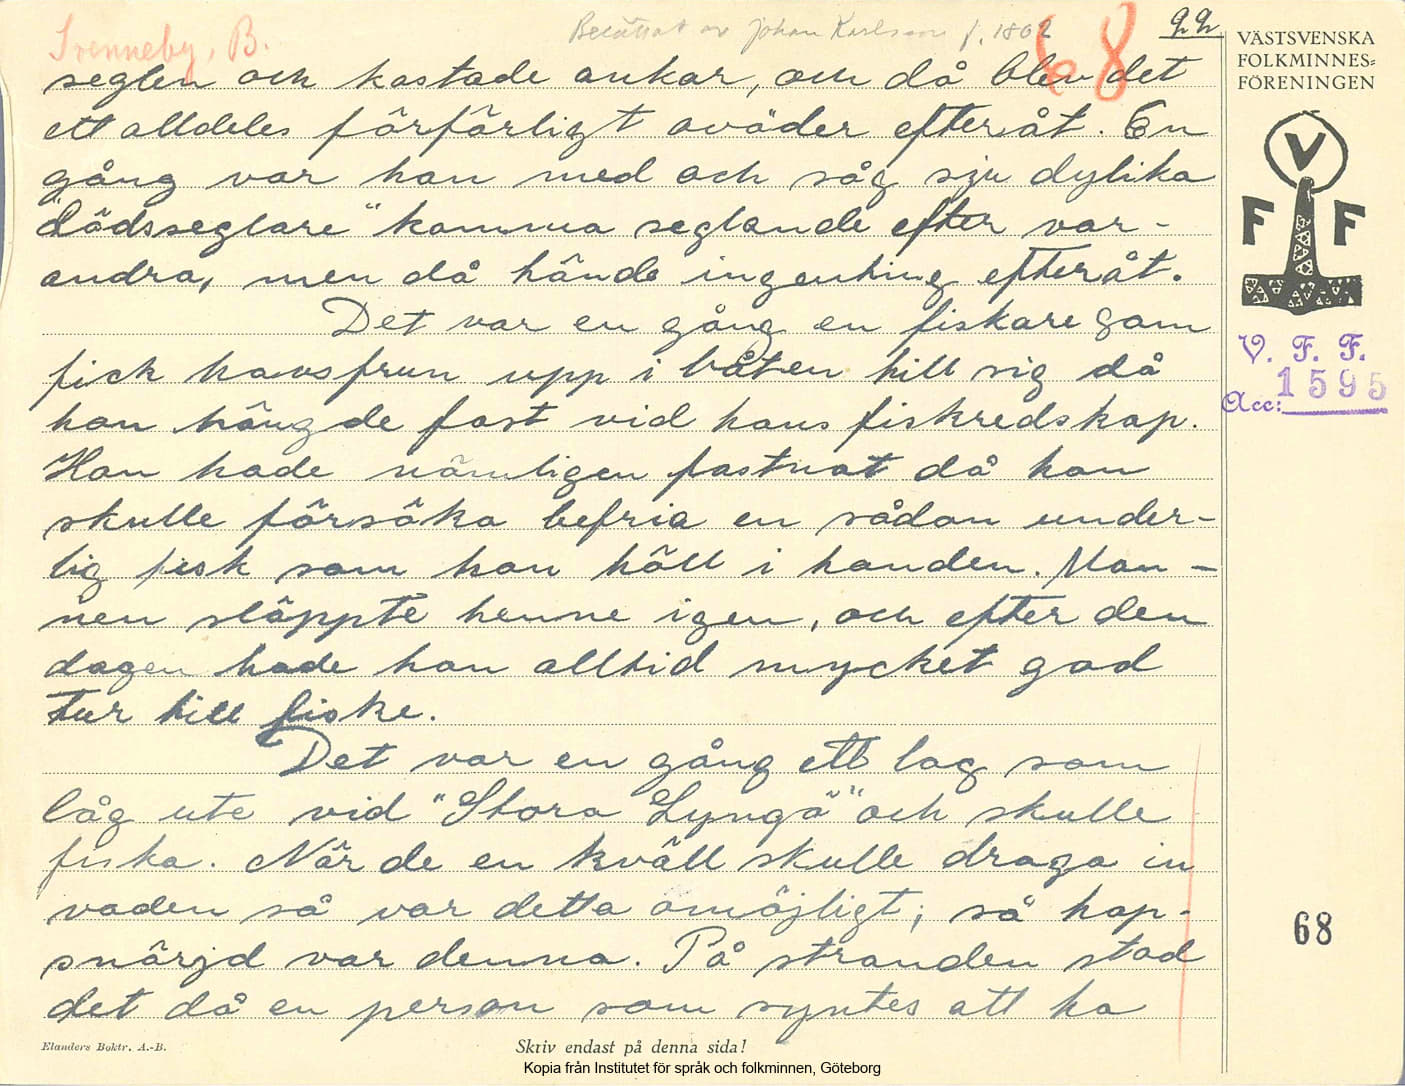 Svenneby, B.
Berättat av Johan Karlsson f. 1862
68
22
VÄSTSVENSKA
FOLKMINNES=
FÖRENINGEN
V
F F
V. F. F.
Acc: 1595
seglen och kastade ankar, och då blev det
ett alldeles förfärligt oväder efteråt. En
gång var han med och såg sju dylika
"dödsseglare" komma seglande efter var-
andra, men då hände ingenting efteråt.
Det var en gång en fiskare som
fick havsfrun upp i båten till sig då
hon hängde fast vid hans fiskredskap.
Hon hade nämligen fastnat då hon
skulle försöka befria en sådan under-
lig fisk som hon höll i handen. Man-
nen släppte henne igen, och efter den
dagen hade han alltid mycket god
tur till fiske.
Det var en gång ett lag som
låg ute vid "Stora Lyngö" och skulle
fiska. När de en kväll skulle draga in
vaden så var detta omöjligt; så hop-
snärjd var denna. På stranden stod
det då en person som syntes att ha
68
Elanders Boktr. A.-B.
Skriv endast på denna sida!
Kopia från Institutet för språk och folkminnen, Göteborg